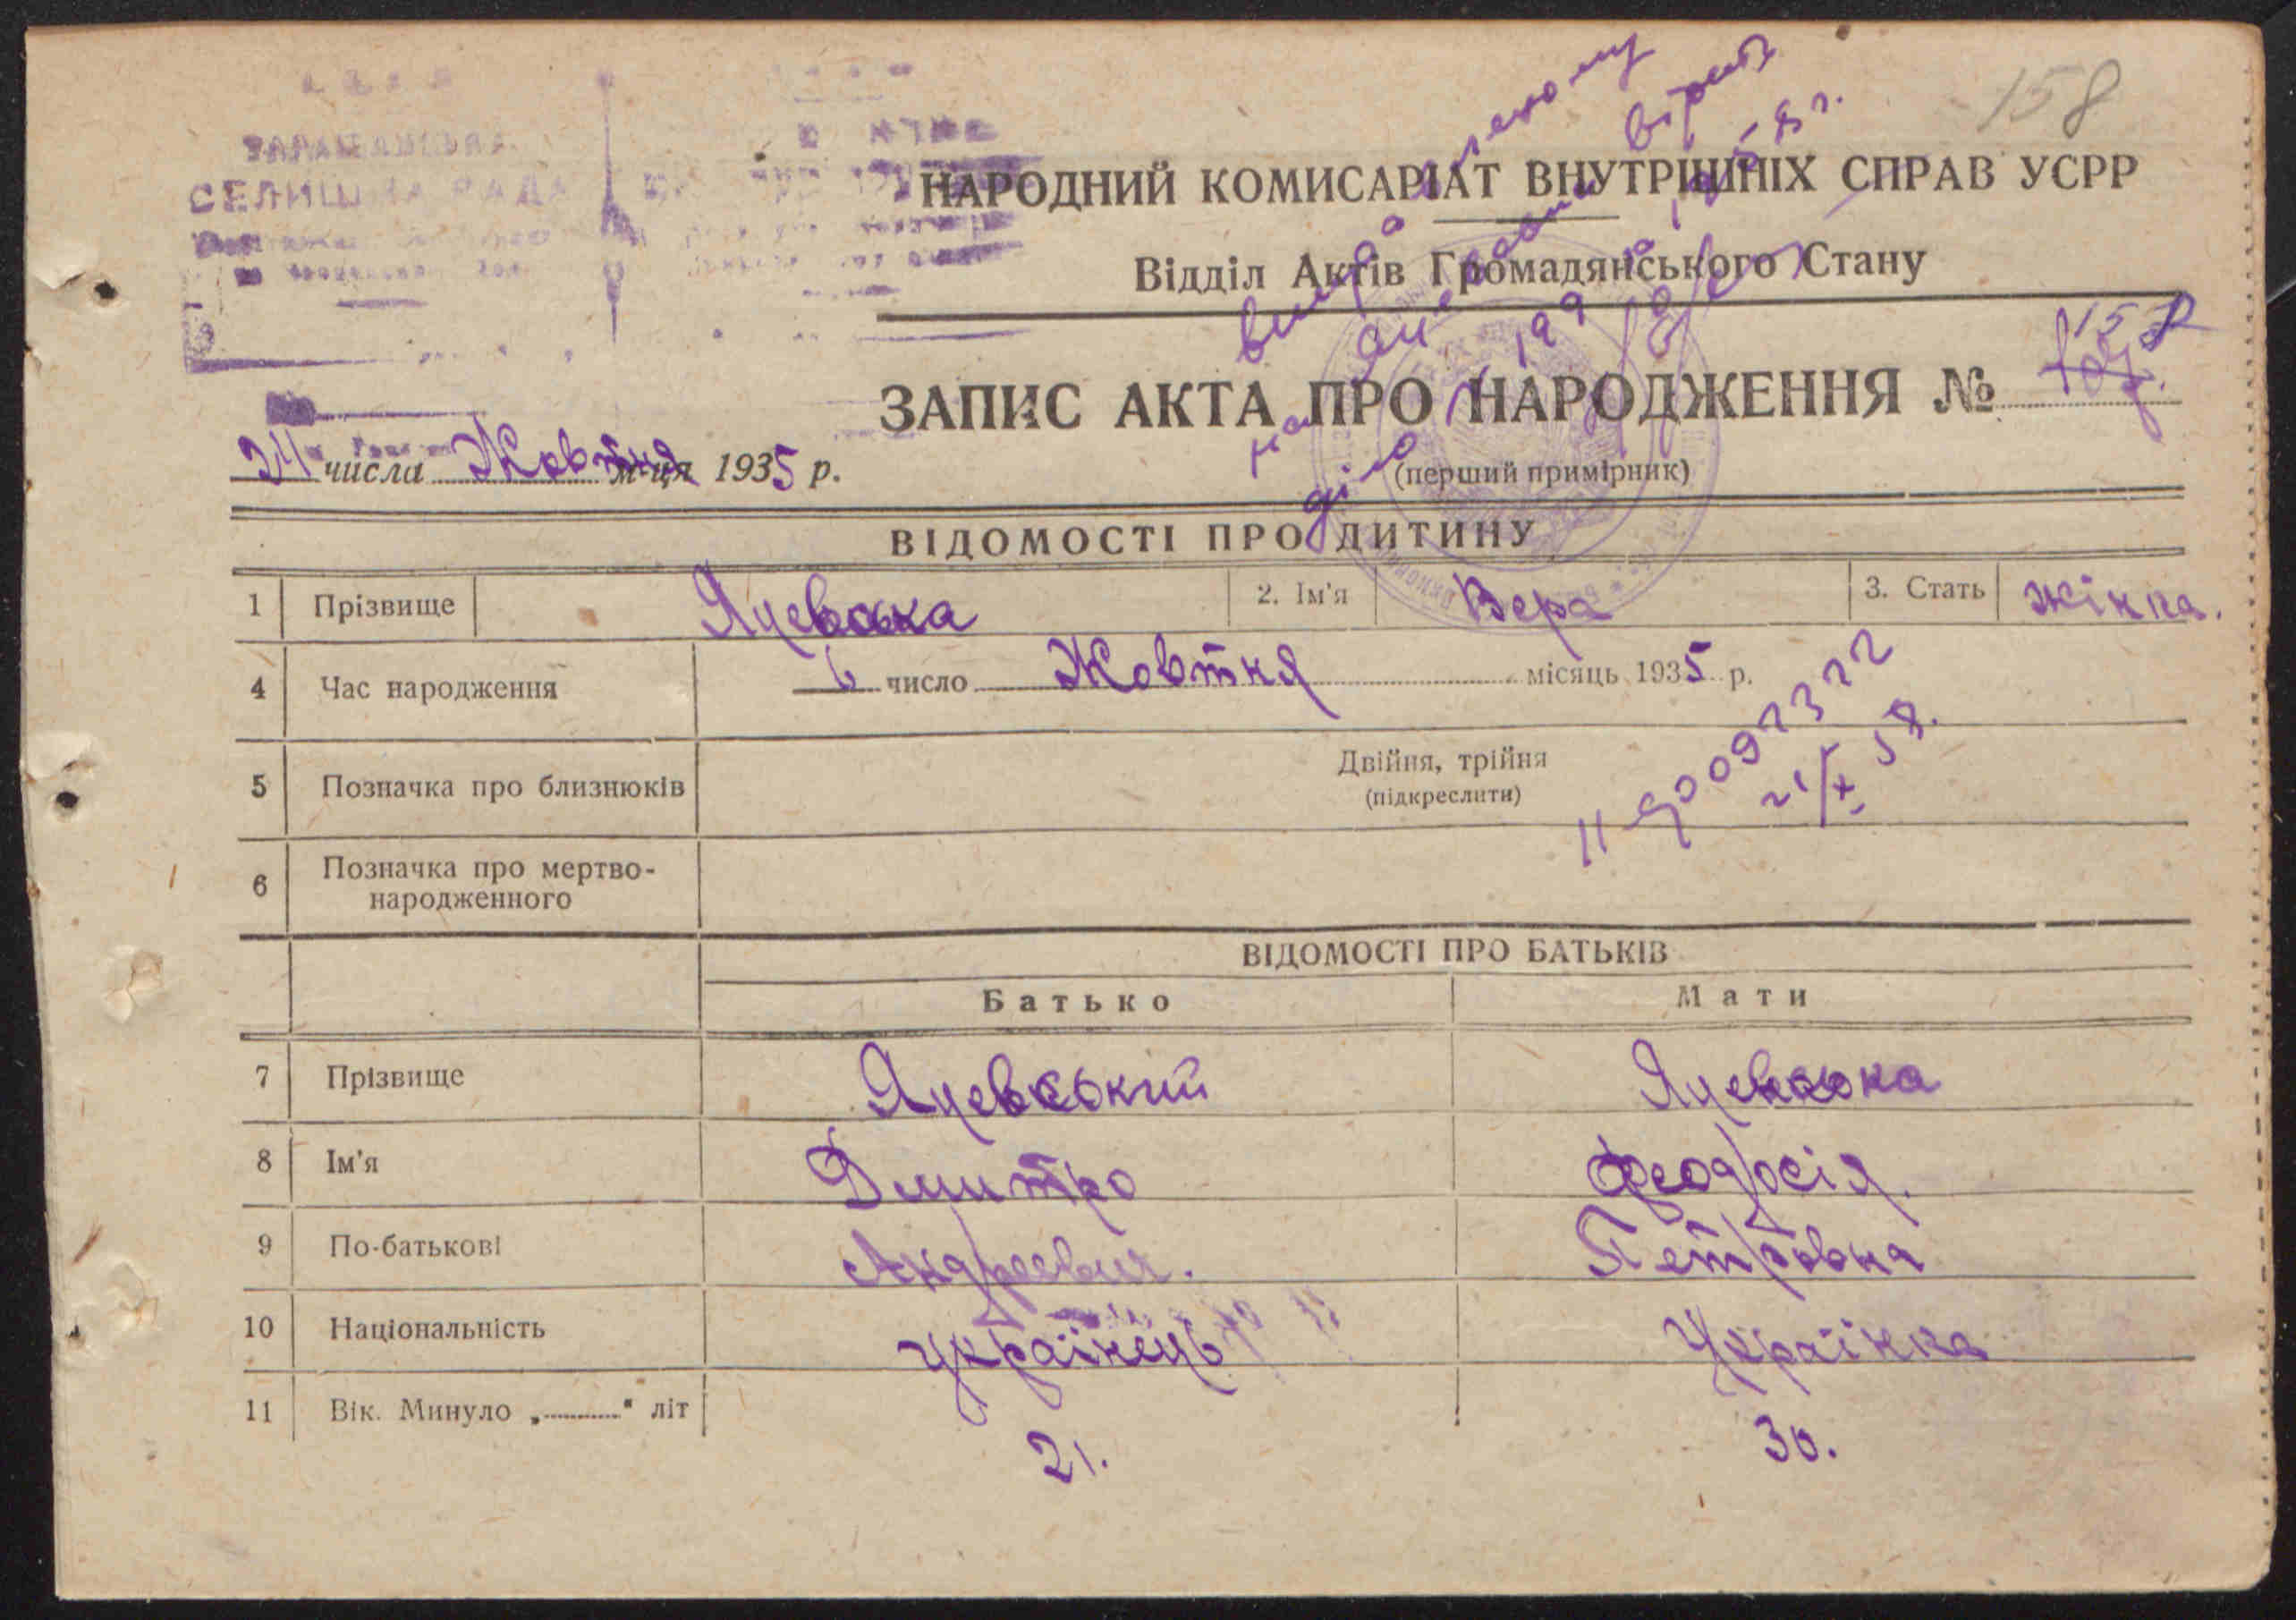 158
СЕЛИЩНА РАДА
НАРОДНИЙ КОМИСАРІАТ ВНУТРІШНІХ СПРАВ УСРР
Відділ Актів Громадянського Стану
ЗАПИС АКТА ПРО НАРОДЖЕННЯ № 158
24 числа Жовтня м-ця 1935 р.
(перший примірник)
ВІДОМОСТІ ПРО ДИТИНУ
1 Прізвище Яцевська 2. Ім'я Вера 3. Стать жінка.
4 Час народження 6 число Жовтня місяць 1935 р.
5 Позначка про близнюків Двійня, трійня
(підкреслити)
21/X 58.
6 Позначка про мертво-
народженного
ВІДОМОСТІ ПРО БАТЬКІВ
Батько Мати
7 Прізвище Яцевський Яцевська
8 Ім'я Дмитро Феодосія.
9 По-батькові Андреевич. Петровна
10 Національність Українець Українка
11 Вік. Минуло „ " літ 21. 30.